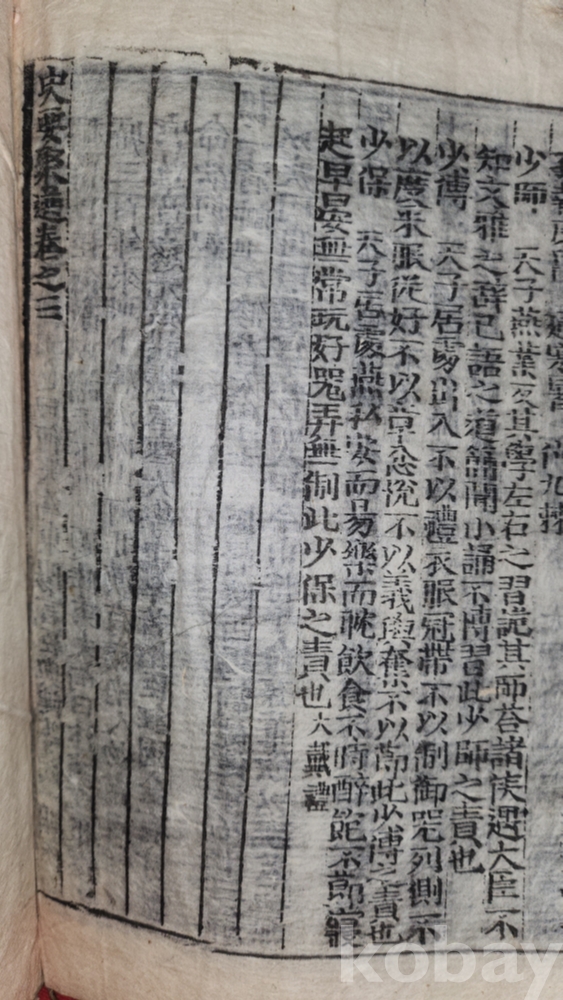 少師 天子燕業反其學左右之習詭其師荅諸侯遇大臣不
知文雅之辭已語之道簡聞小誦不博習此少師之責也
少傅 天子居處出入不以禮衣服冠帶不以制御器列側不
以度采服從好不以章忿悅不以義與奪不以節此少傅之責也
少保 天子居處燕私安而易樂而耽飮食不時醉飽不節寢
起早晏無常玩好器弄無制此少保之責也 大戴禮
史要聚選卷之三
kobay